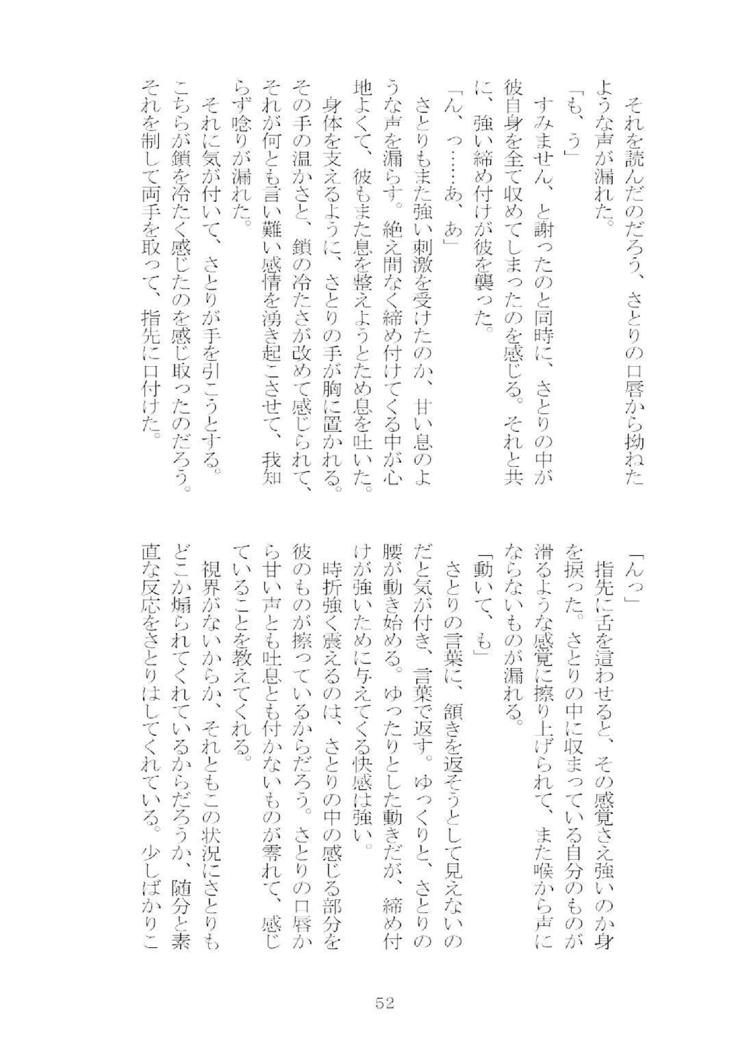 それを読んだのだろう、さとりの口唇から拗ねた
ような声が漏れた。
「も、う」
　すみません、と謝ったのと同時に、さとりの中が
彼自身を全て収めてしまったのを感じる。それと共
に、強い締め付けが彼を襲った。
「ん、っ……あ、あ」
　さとりもまた強い刺激を受けたのか、甘い息のよ
うな声を漏らす。絶え間なく締め付けてくる中が心
地よくて、彼もまた息を整えようとため息を吐いた。
　身体を支えるように、さとりの手が胸に置かれる。
その手の温かさと、鎖の冷たさが改めて感じられて、
それが何とも言い難い感情を湧き起こさせて、我知
らず唸りが漏れた。
　それに気が付いて、さとりが手を引こうとする。
こちらが鎖を冷たく感じたのを感じ取ったのだろう。
それを制して両手を取って、指先に口付けた。
「んっ」
　指先に舌を這わせると、その感覚さえ強いのか身
を捩った。さとりの中に収まっている自分のものが
滑るような感覚に擦り上げられて、また喉から声に
ならないものが漏れる。
「動いて、も」
　さとりの言葉に、頷きを返そうとして見えないの
だと気が付き、言葉で返す。ゆっくりと、さとりの
腰が動き始める。ゆったりとした動きだが、締め付
けが強いために与えてくる快感は強い。
　時折強く震えるのは、さとりの中の感じる部分を
彼のものが擦っているからだろう。さとりの口唇か
ら甘い声とも吐息とも付かないものが零れて、感じ
ていることを教えてくれる。
　視界がないからか、それともこの状況にさとりも
どこか煽られてくれているからだろうか、随分と素
直な反応をさとりはしてくれている。少しばかりこ
52